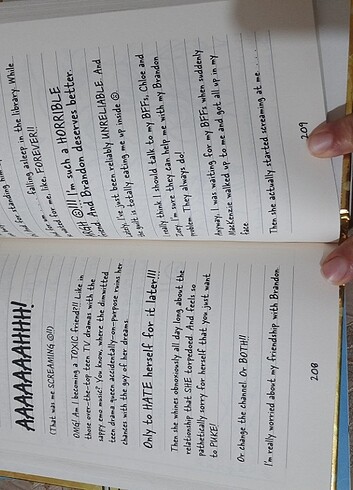 AAAAAAAHHH!
(That was me SCREAMING ☹!!)
OMG! Am I becoming a TOXIC friend?!! Like in
those over-the-top teen TV dramas with the
sappy emo music? You know, where the dimwitted
teen drama queen accidentally-on-purpose ruins her
chances with the guy of her dreams.
Only to HATE herself for it later!!!
Then she whines obnoxiously all day long about the
relationship that SHE torpedoed. And feels so
pathetically sorry for herself that you just want
to PUKE!
Or change the channel. Or BOTH!!
I'm really worried about my friendship with Brandon
208
for standing him
falling asleep in the library. While
for me like, FOREVER!!
☹!!! I'm such a HORRIBLE
And Brandon deserves better.
I've just been reliably UNRELIABLE. And
guilt is totally eating me up inside ☹
think I should talk to my BFFs, Chloe and
I'm sure they can help me with my Brandon
They always do!
Anyway, I was waiting for my BFFs when suddenly
MacKenzie walked up to me and got all up in my
face
Then she actually started screaming at me . . .
209